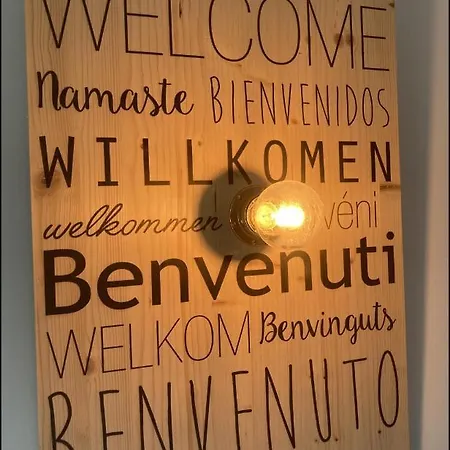 WELCOME
Namaste BIENVENIDOS
WILLKOMEN
welkommen véni
Benvenuti
WELKOM Benvinguts
BENVENUTO